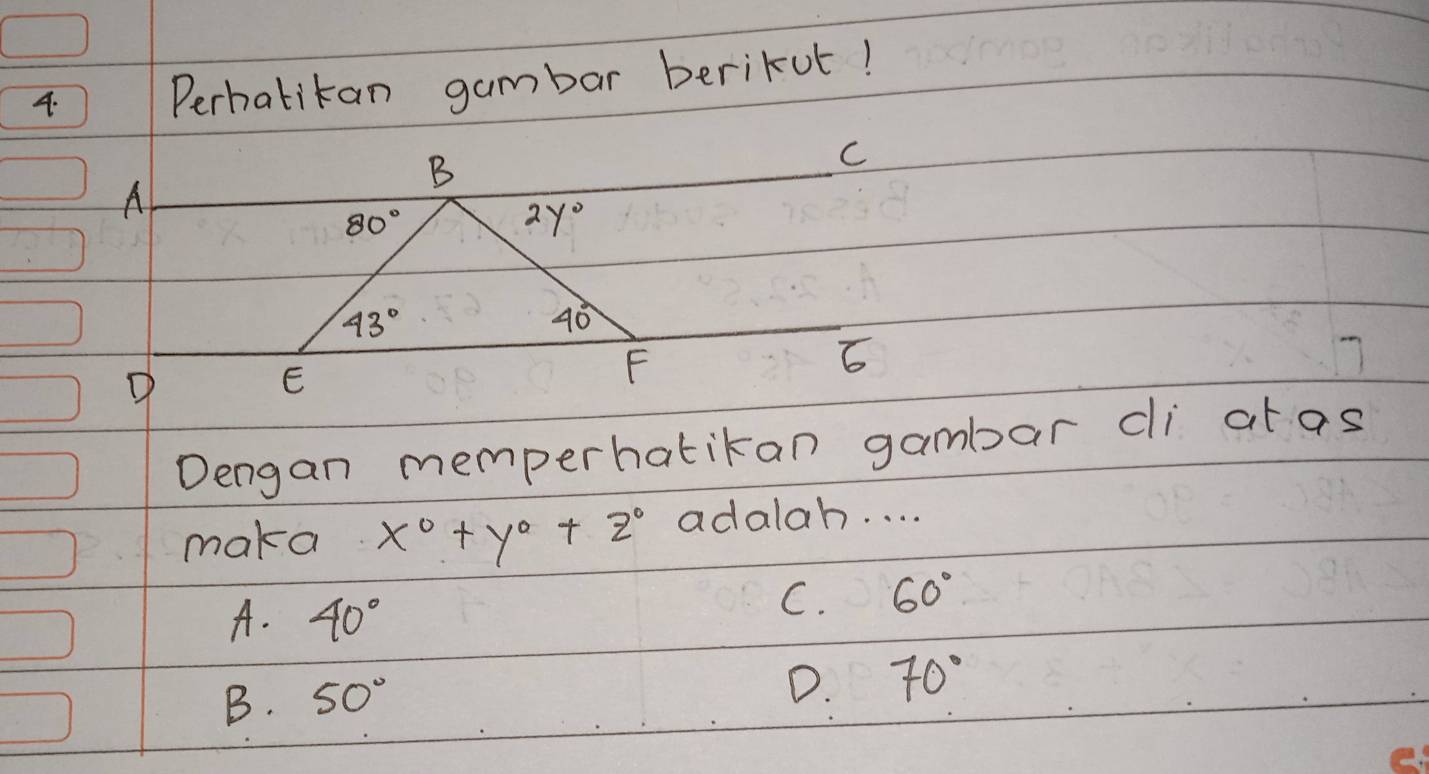 4. Perhatikan gambar berikut!
A B C
80° 2y°
43° 40°
D E F G
Dengan memperhatikan gambar di atas
maka x° + y° + z° adalah....
A. 40° C. 60°
B. 50° D. 70°